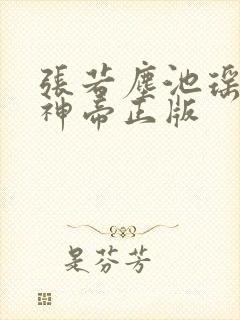 張若塵池瑤
神帝正版
是芬芳